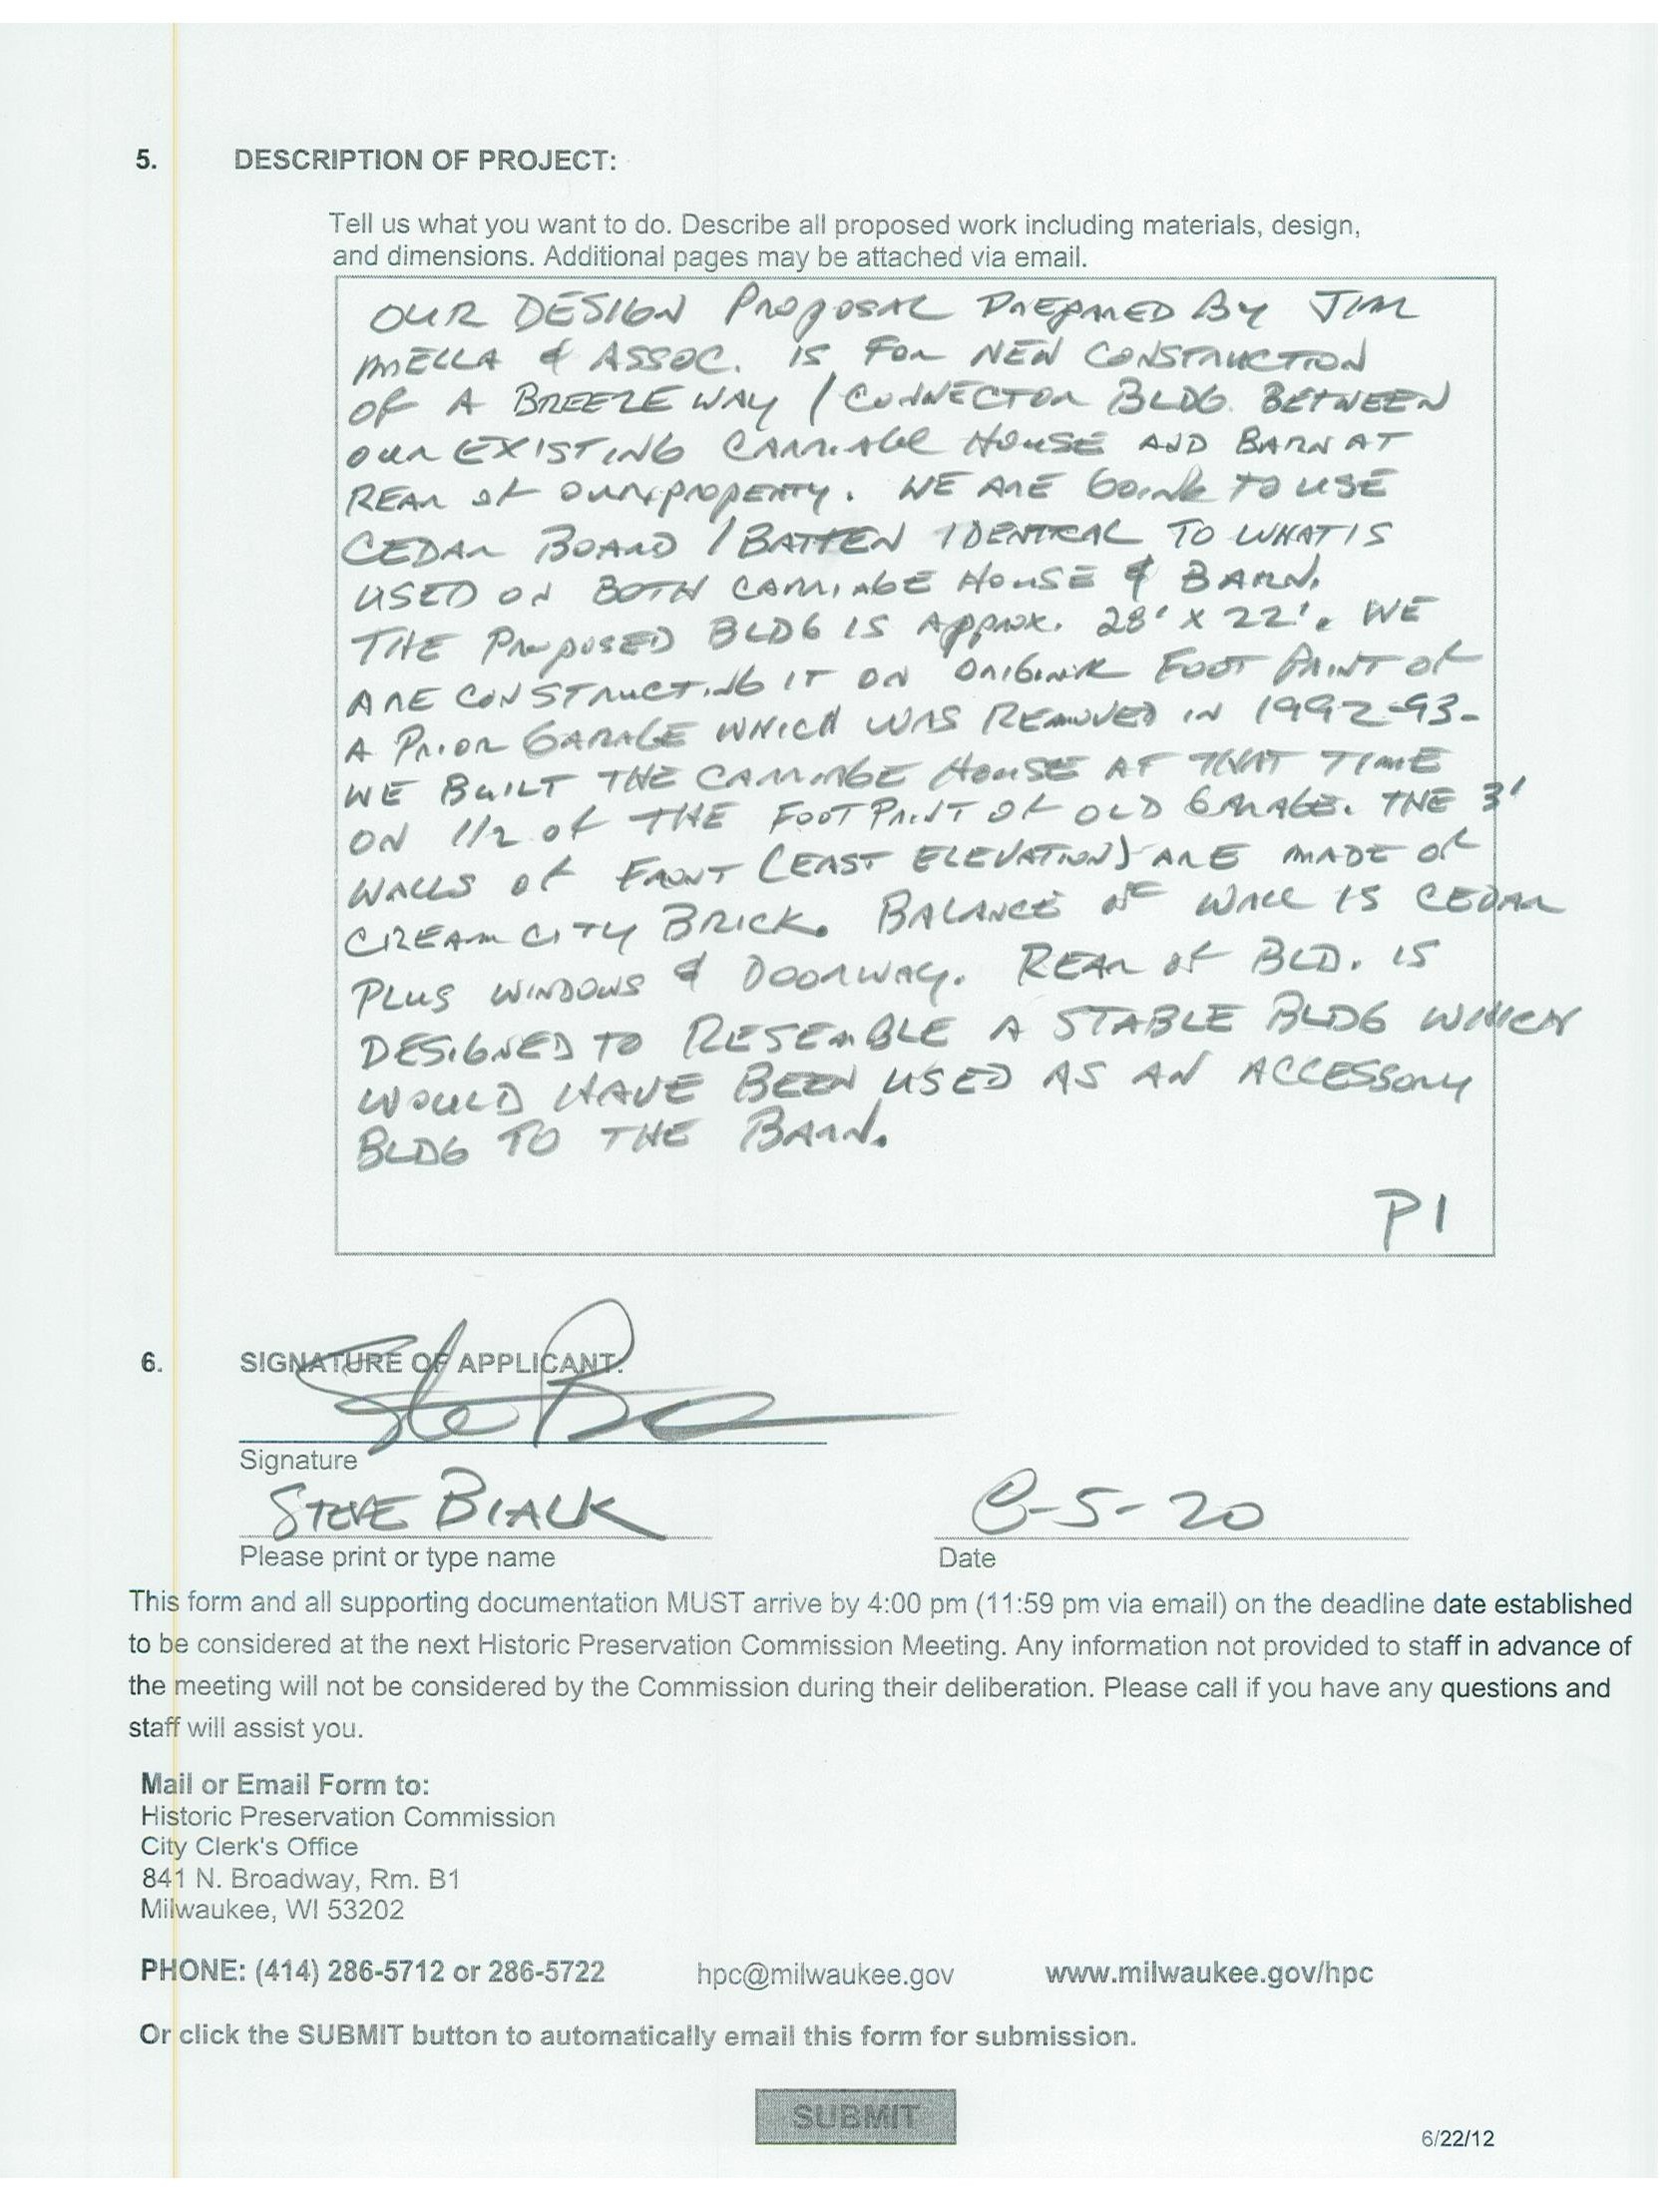 5. DESCRIPTION OF PROJECT:
Tell us what you want to do. Describe all proposed work including materials, design,
and dimensions. Additional pages may be attached via email.
OUR DESIGN PROPOSAL PREPARED BY JIM
MELLA & ASSOC. IS FOR NEW CONSTRUCTION
OF A BREEZEWAY / CONNECTOR BLDG. BETWEEN
OUR EXISTING CARRIAGE HOUSE AND BARN AT
REAR OF OUR PROPERTY. WE ARE GOING TO USE
CEDAR BOARD / BATTEN IDENTICAL TO WHAT IS
USED ON BOTH CARRIAGE HOUSE & BARN.
THE PROPOSED BLDG IS APPROX. 28' X 22'. WE
ARE CONSTRUCTING IT ON ORIGINAL FOOT PRINT OF
A PRIOR GARAGE WHICH WAS REMOVED IN 1992-93-
WE BUILT THE CARRIAGE HOUSE AT THAT TIME
ON 1/2 OF THE FOOTPRINT OF OLD GARAGE. THE 3'
WALLS OF FRONT (EAST ELEVATION) ARE MADE OF
CREAM CITY BRICK. BALANCE OF WALL IS CEDAR
PLUS WINDOWS & DOORWAY. REAR OF BLD. IS
DESIGNED TO RESEMBLE A STABLE BLDG WHICH
WOULD HAVE BEEN USED AS AN ACCESSORY
BLDG TO THE BARN.
P1
6. SIGNATURE OF APPLICANT:
Signature
STEVE BIALK 8-5-20
Please print or type name Date
This form and all supporting documentation MUST arrive by 4:00 pm (11:59 pm via email) on the deadline date established
to be considered at the next Historic Preservation Commission Meeting. Any information not provided to staff in advance of
the meeting will not be considered by the Commission during their deliberation. Please call if you have any questions and
staff will assist you.
Mail or Email Form to:
Historic Preservation Commission
City Clerk's Office
841 N. Broadway, Rm. B1
Milwaukee, WI 53202
PHONE: (414) 286-5712 or 286-5722 hpc@milwaukee.gov www.milwaukee.gov/hpc
Or click the SUBMIT button to automatically email this form for submission.
SUBMIT
6/22/12